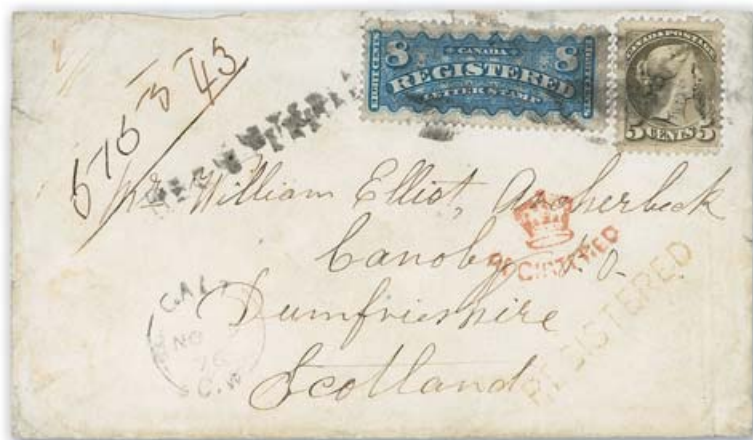 8 CANADA 8
EIGHT CENTS REGISTERED EIGHT CENTS
LETTER STAMP
CANADA POSTAGE
5 CENTS 5
REGISTERED
Mr William Elliot, Archerbeck
Canoby P.O.
Dumfriesshire
Scotland
REGISTERED
REGISTERED
NO
76
C.W